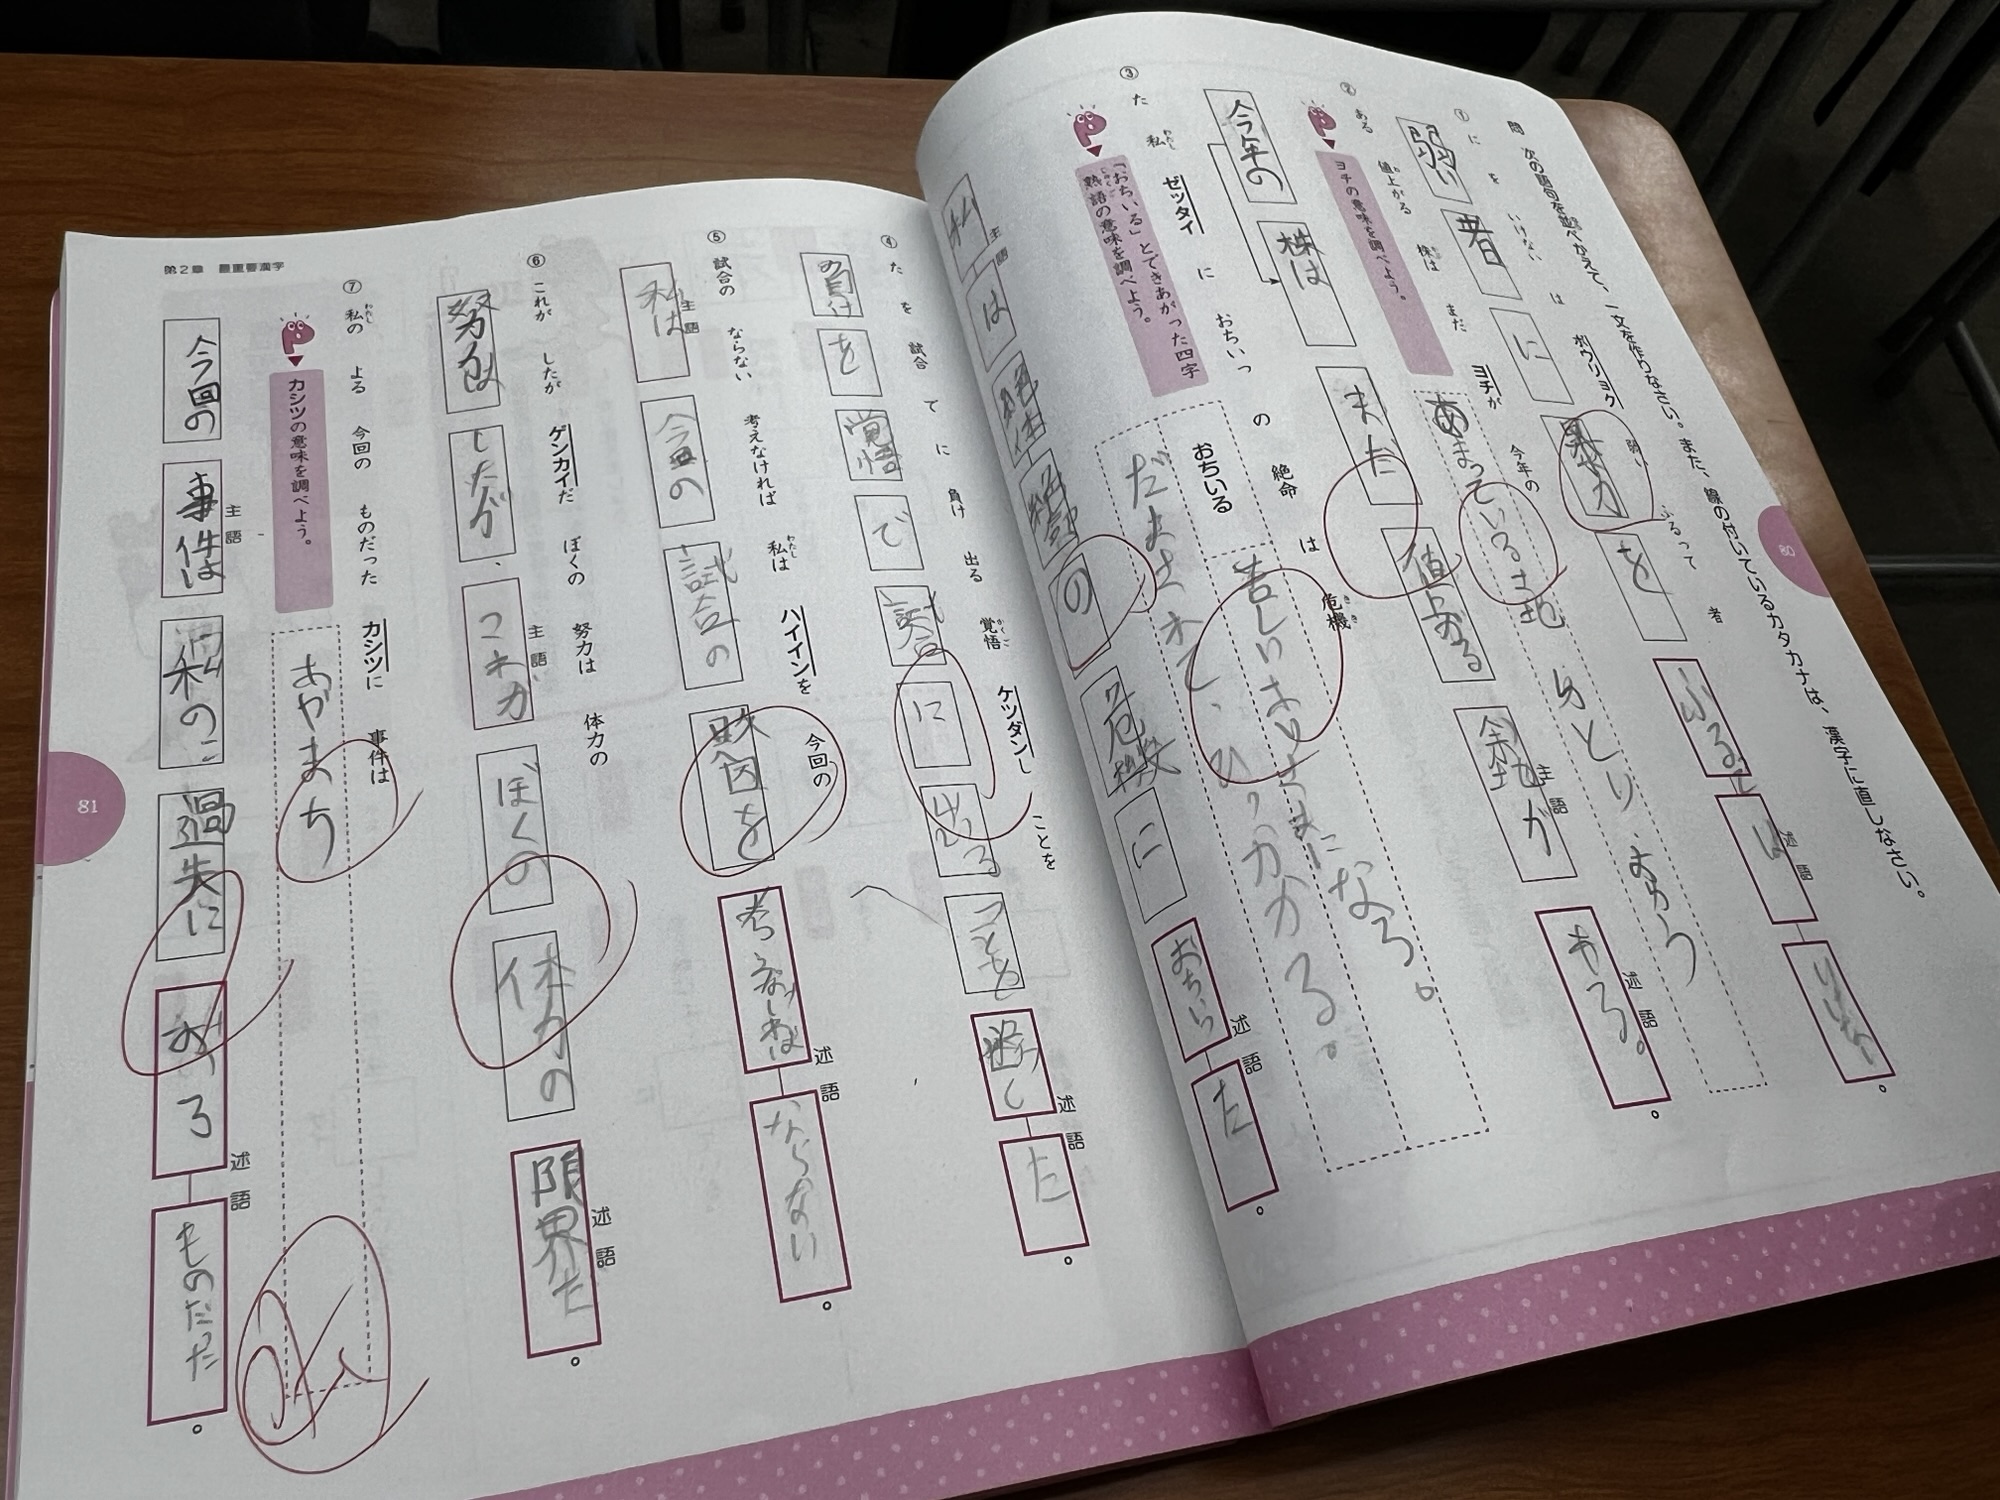 問 次の語句を並べかえて、一文を作りなさい。また、線の付いているカタカナは、漢字に直しなさい。
① に を いけない は ボウリョク 弱い ふるって 者
弱い 者 に 暴力 を ふるて は いけない。
② ある 値上がる 株は まだ ヨチが 今年の
ヨチの意味を調べよう。
あまっている土地 ゆとり、よゆう
今年の 株は まだ 値上がる 余地が ある。
③ た 私 ゼッタイ に おちいっ の 絶命 は 危機
「おちいる」とできあがった四字熟語の意味を調べよう。
おちいる
苦しいはりさまになる。
だまされて、ひっかかる。
私 は 絶体絶命 の 危機 に おちいっ た。
80
④ た を 試合 て に 負け 出る 覚悟 ケツダンし ことを
負け を 覚悟 で 試合 に 出る ことを 断し た。
⑤ 試合の ならない 考えなければ 私は ハイインを 今回の
私は 今回の 試合の 敗因を 考えなければ ならない。
⑥ これが したが ゲンカイだ ぼくの 努力は 体力の
努力は したが、 これが ぼくの 体力の 限界だ。
⑦ 私の よる 今回の ものだった カシツに 事件は
カシツの意味を調べよう。
あやまち
今回の 事件は 私の 過失に よる ものだった。
主語
述語
第2章 最重要漢字
81